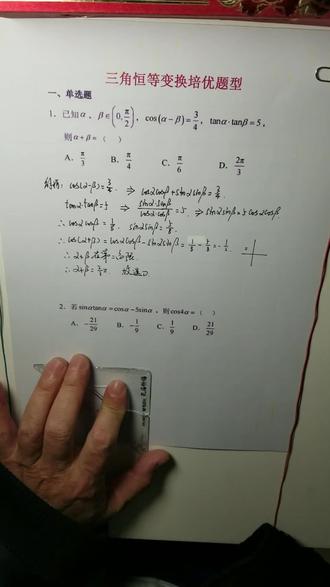 三角恒等变换培优题型
一、单选题
1. 已知α，β∈(0, π/2)，cos(α−β)=3/4，tanα·tanβ=5，
则α+β=（ ）
A. π/3 B. π/4 C. π/6 D. 2π/3
cos(α-β)=3/4 ⇒ cosαcosβ+sinαsinβ=3/4
tanα·tanβ=5 ⇒ sinα·sinβ/cosα·cosβ=5. ⇒ sinαsinβ=5cosαcosβ.
∴ cosαcosβ=1/8. sinαsinβ=5/8.
∴ cos(α+β)=cosαcosβ-sinαsinβ=1/8-5/8=-1/2.
∴ α+β在第二象限
∴ α+β=2/3π. 故选D
2. 若sinαtanα=cosα−5sinα，则cos4α=（ ）
A. −21/29 B. −1/9 C. 1/9 D. 21/29